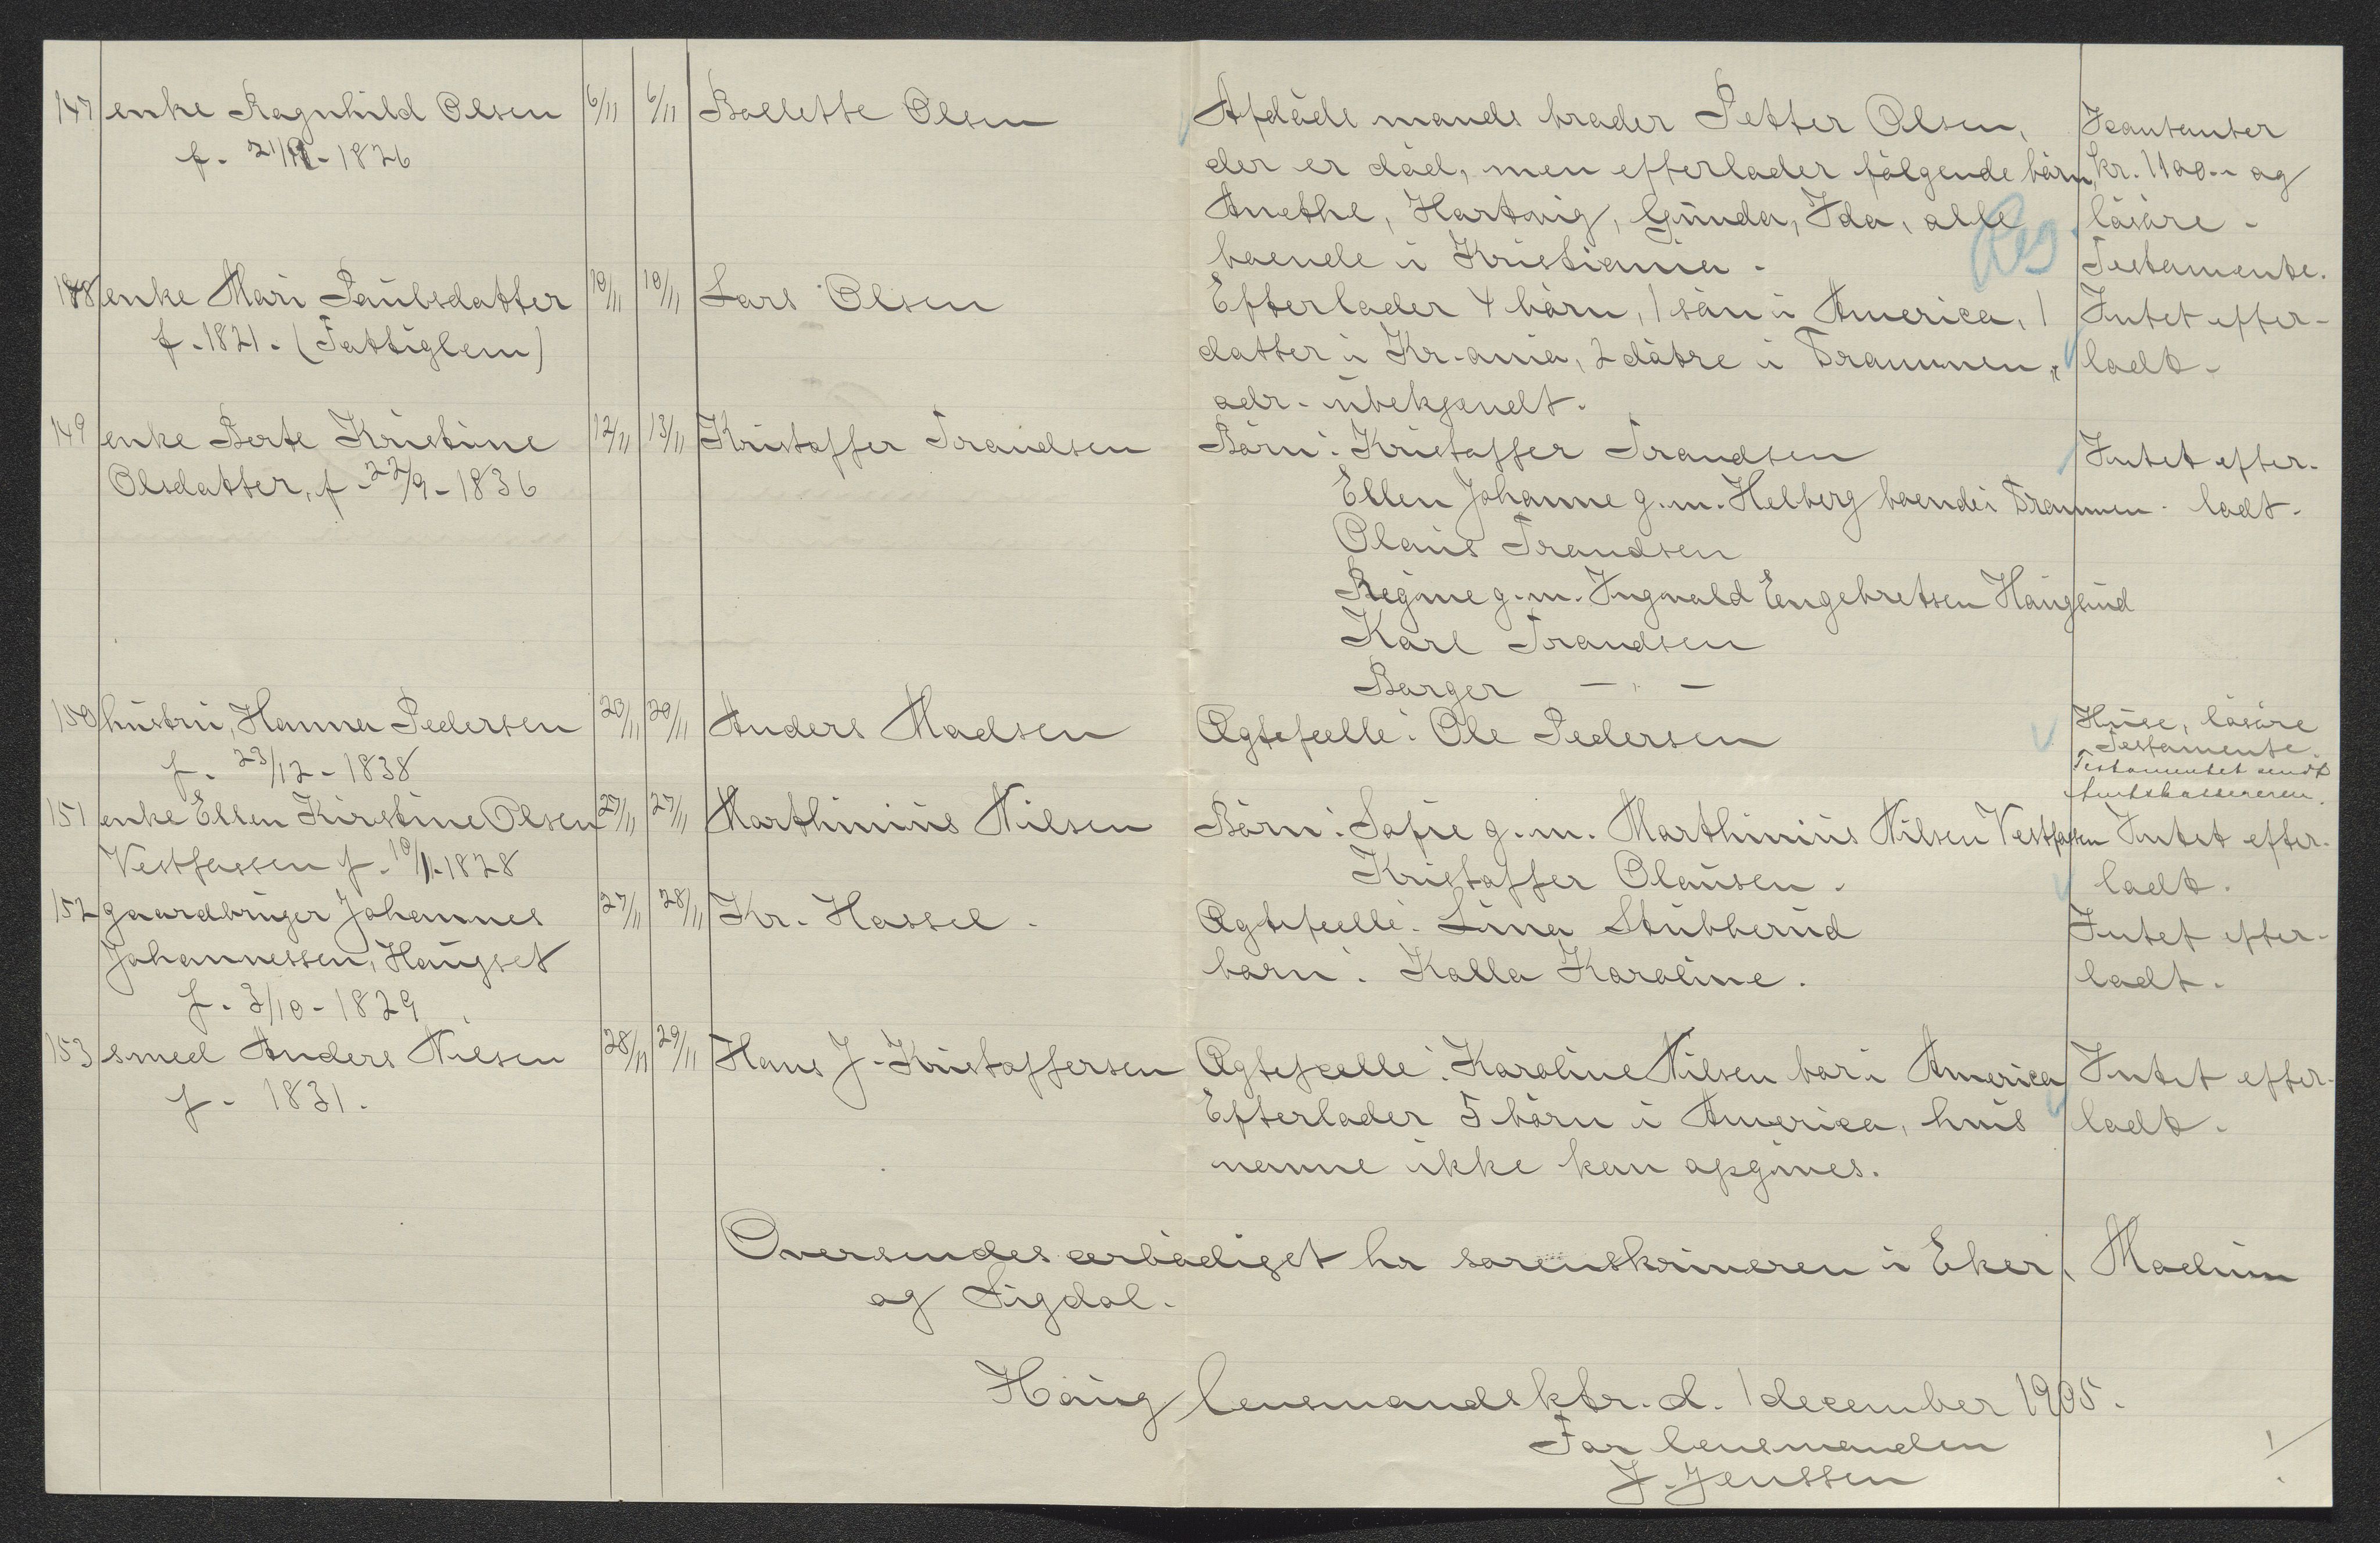 147 enke Ragnhild Olsen 6/11 6/11 Bollette Olsen Afdøde mands broder Petter Olsen, Kontanter
f. 1826 der er død, men efterlader følgende børn, kr. 1100.- og
Anethe, Hartvig, Gunda, Ida, alle løsøre.
boende i Kristiania. Reg. Testamente.
148 enke Mari Paulsdatter 10/11 10/11 Lars Olsen Efterlader 4 børn, 1 søn i America, 1 Intet efter-
f. 1821. (Fattiglem) datter i Kr.ania, 2 døtre i Drammen, ladt.
adr. ubekjendt.
149 enke Berte Kristine 12/11 13/11 Kristoffer Trandsen Børn: Kristoffer Trandsen Intet efter-
Olsdatter, f. 22/9-1836 Ellen Johanne g.m. Helberg boende i Drammen. ladt.
Olaus Trandsen
Regine g.m. Ingvald Engebretsen Hauglund
Karl Trandsen
Borger — " —
150 hustru, Hanna Pedersen 20/11 20/11 Anders Madsen Ægtefælle: Ole Pedersen Huse, løsøre
f. 23/12-1838 Testamente.
Testamentet sendt
Amtskassereren.
151 enke Ellen Kirstine Olsen 27/11 27/11 Marthinius Nilsen Børn: Sofie g.m. Marthinius Nilsen Vestfossen Intet efter-
Vestfossen f. 10/11-1828 Kristoffer Olausen. ladt.
152 gaardbruger Johannes 27/11 28/11 Kr. Hassel. Ægtefælle: Lina Stubberud Intet efter-
Johannessen, Haugset barn: Kalla Karoline. ladt.
f. 3/10-1829
153 smed Anders Nilsen 28/11 29/11 Hans J. Kristoffersen Ægtefælle: Karoline Nilsen bor i America Intet efter-
f. 1831. Efterlader 5 børn i America, hvis ladt.
navne ikke kan opgives.
Oversendes ærbødigst hr sorenskriveren i Eker, Modum
og Sigdal.
Haug lensmandsktr. d. 1 december 1905.
For lensmanden
J. Jenssen